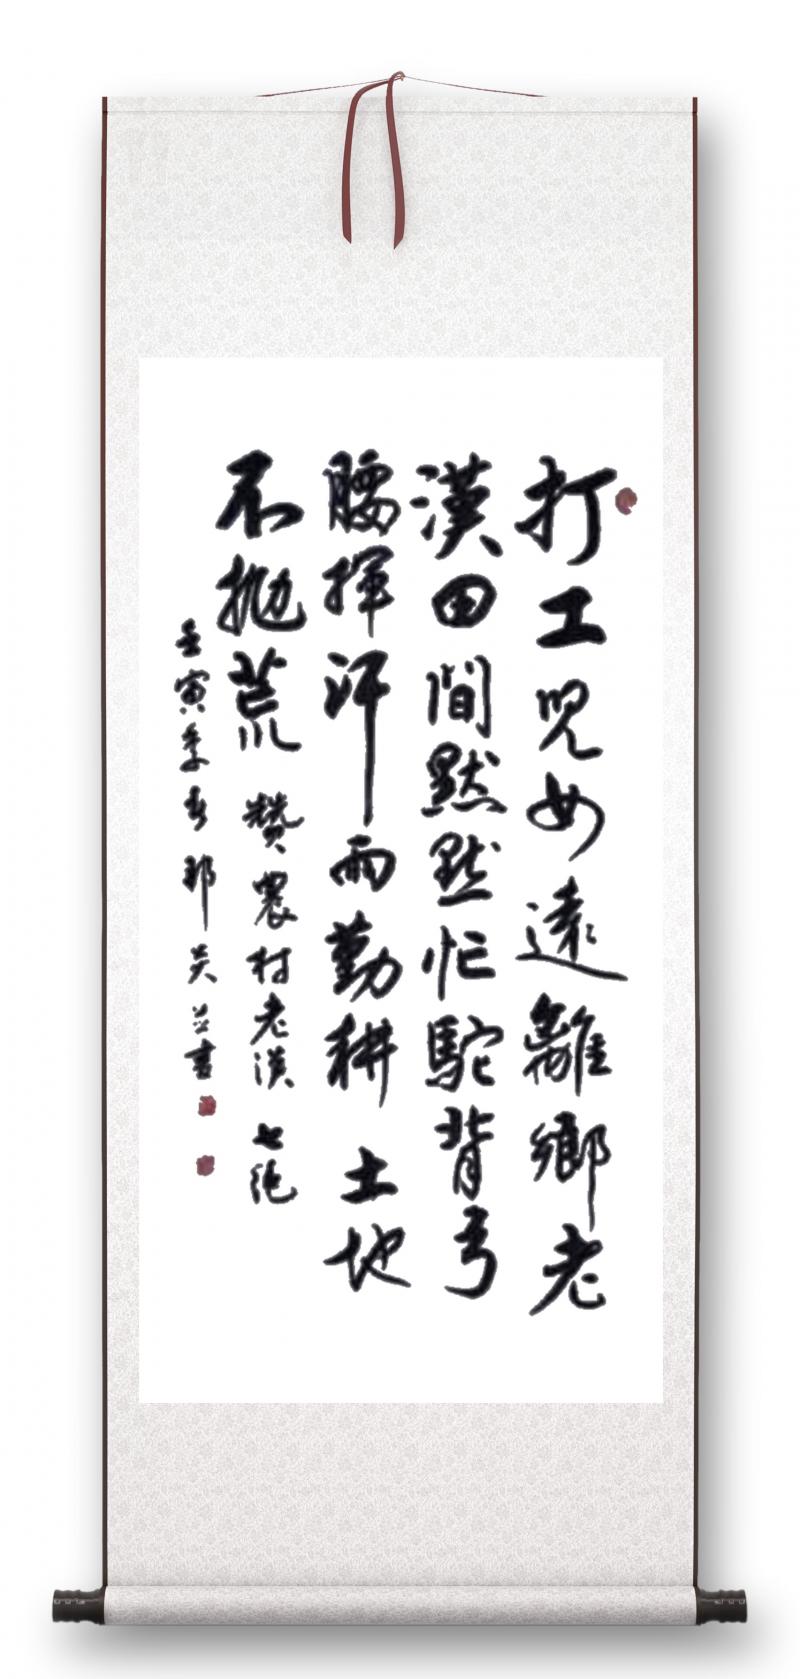 打工兒女遠離鄉老
漢田間默默忙駝背弓
腰揮汗雨勤耕土地
不拋荒 贊農村老漢 七絕
壬寅季春 書